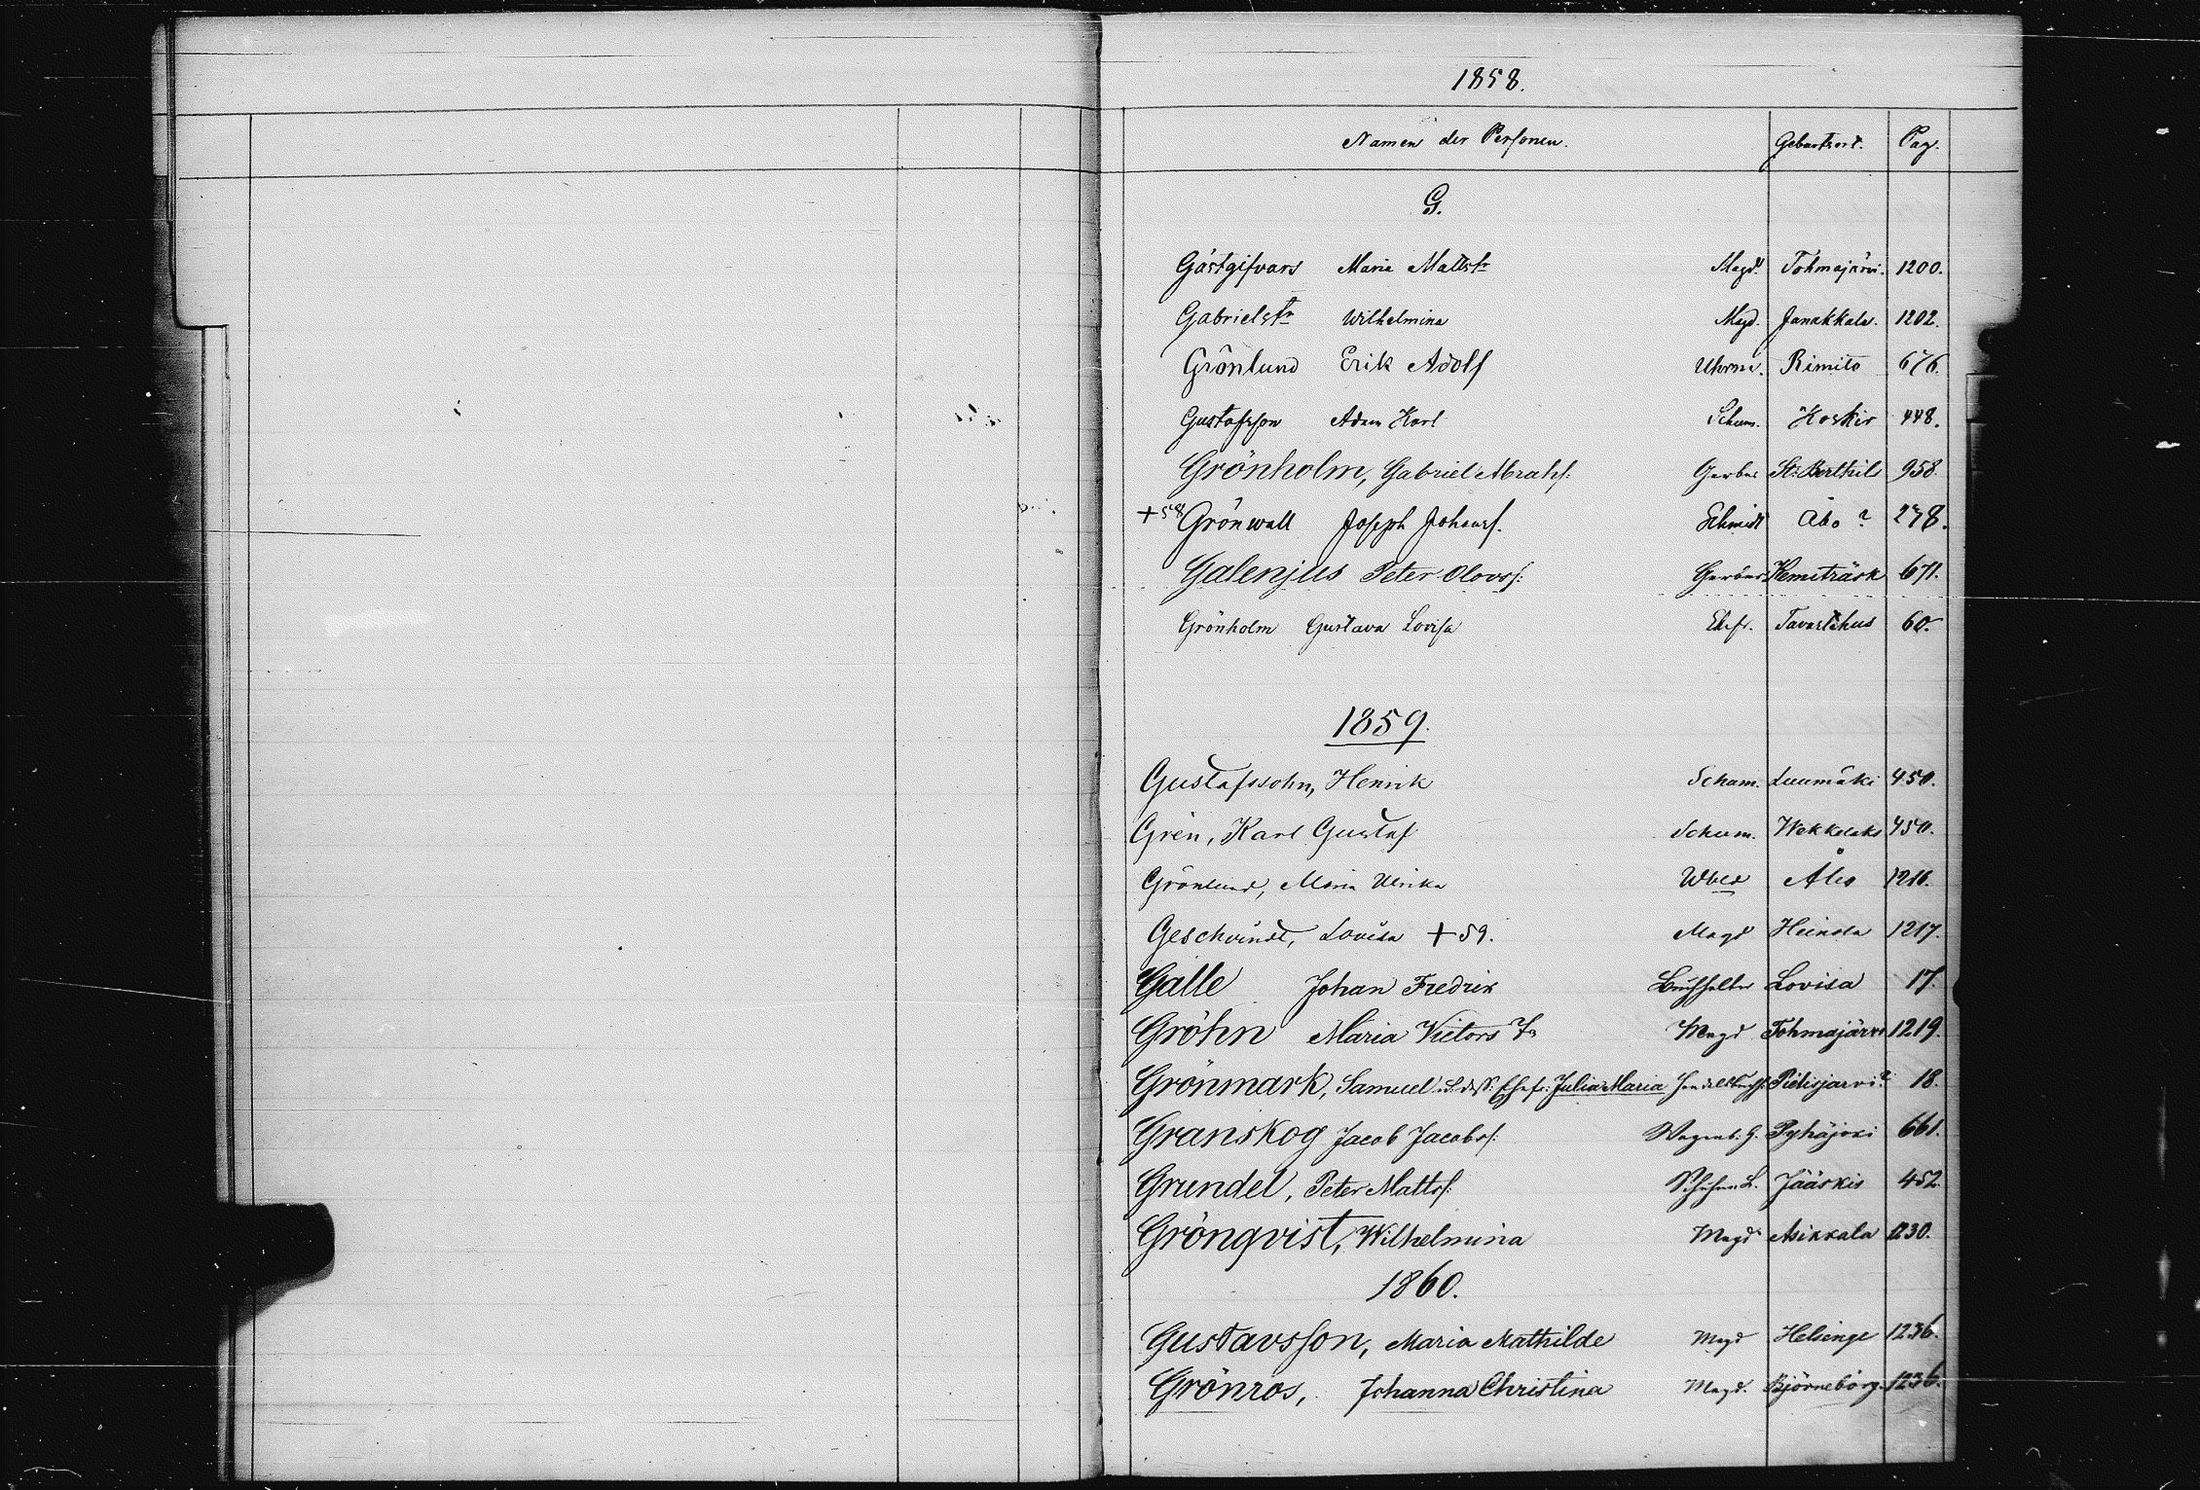 1858.
Namen der Personen. Geburtsort. Pag.
G.
Gästgifvars Maria Mattstr Magd. Tohmajärvi. 1200.
Gabrielstr Wilhelmina Magd. Janakkala. 1202.
Grönlund Erik Adolf Uhrm. Rimito 676.
Gustafsson Adam Karl Schum. Koskis 448.
Grönholm, Gabriel Abrahs: Gerber St: Berthils 958.
+58 Grönwall Joseph Johans. Schmidt Åbo? 278.
Galenjus Peter Olovs: Gerber Kemiträsk 671.
Grönholm Gustava Lovisa Ehefr. Tavastehus 60.
1859.
Gustafssohn, Henrik Schum. Luumäki 450.
Grén, Karl Gustaf Schum. Wekkelaks 450.
Grönlund, Maria Ulrika Åbo 1216.
Geschwindt, Lovisa +59. Magd Heinola 1217.
Galle Johan Fredrik Buchhalter Lovisa 17.
Gröhn Maria Victors Tr Magd Tohmajärvi 1219.
Grönmark, Samuel Ehefr: Julia Maria Pielisjarvi? 18.
Granskog Jacob Jacobs: Wagenb: G. Pyhäjoki 661.
Grundel, Peter Matts: Jääskis 452.
Grönqvist, Wilhelmina Magd Asikkala 1230.
1860.
Gustavsson, Maria Mathilde Magd Helsinge 1236.
Grönros, Johanna Christina Magd. Björneborg. 1236.